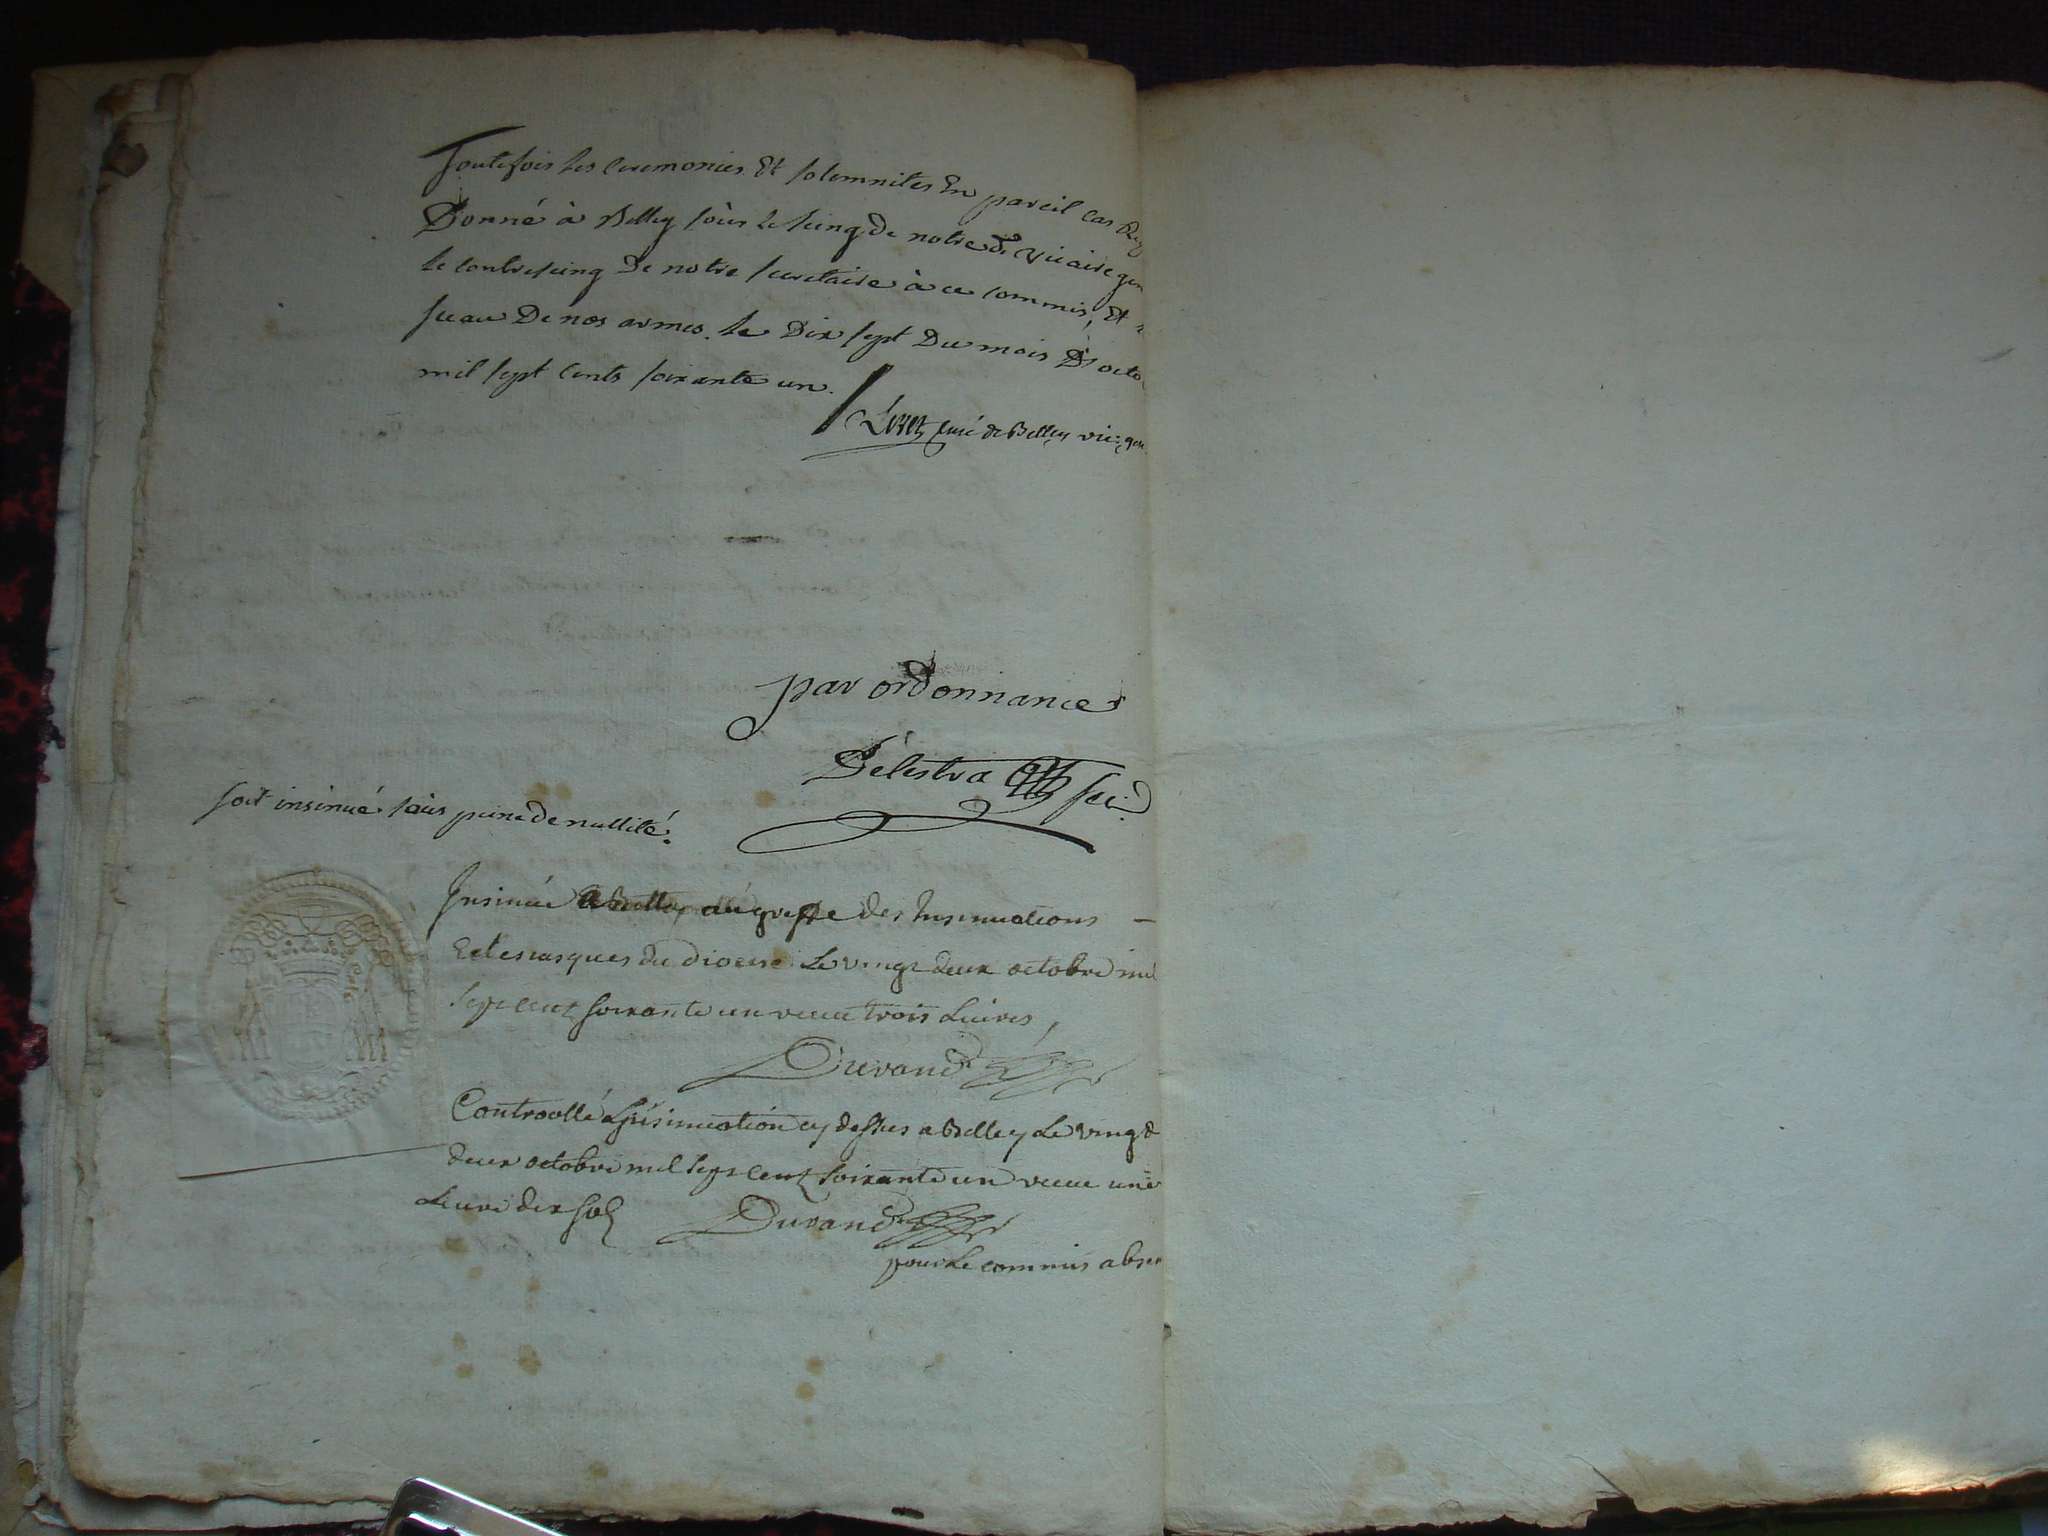 Toutefois les ceremonies Et solemnites En pareil cas
Donné à Belley sous le seing de notre dt vicaire gen
le contreseing De notre secretaire à ce commis, Et
sceau De nos armes. le Dix sept Du mois D'octo
mil sept cents soixante un.
curé de Belley vic: gen
par ordonnance
Délestra sec:
soit insinué sous peine de nullité.
Insinué a Belley au greffe des Insinuations
Eclesiasques du diocese Le vingt deux octobre mil
sept cent soixante un receu trois Livres,
Durand
Controollé L'insinuation cy dessus a Belley Le vingt
deux octobre mil sept cent soixante un receu une
Livre dix sols Durand
pour Le commis absen